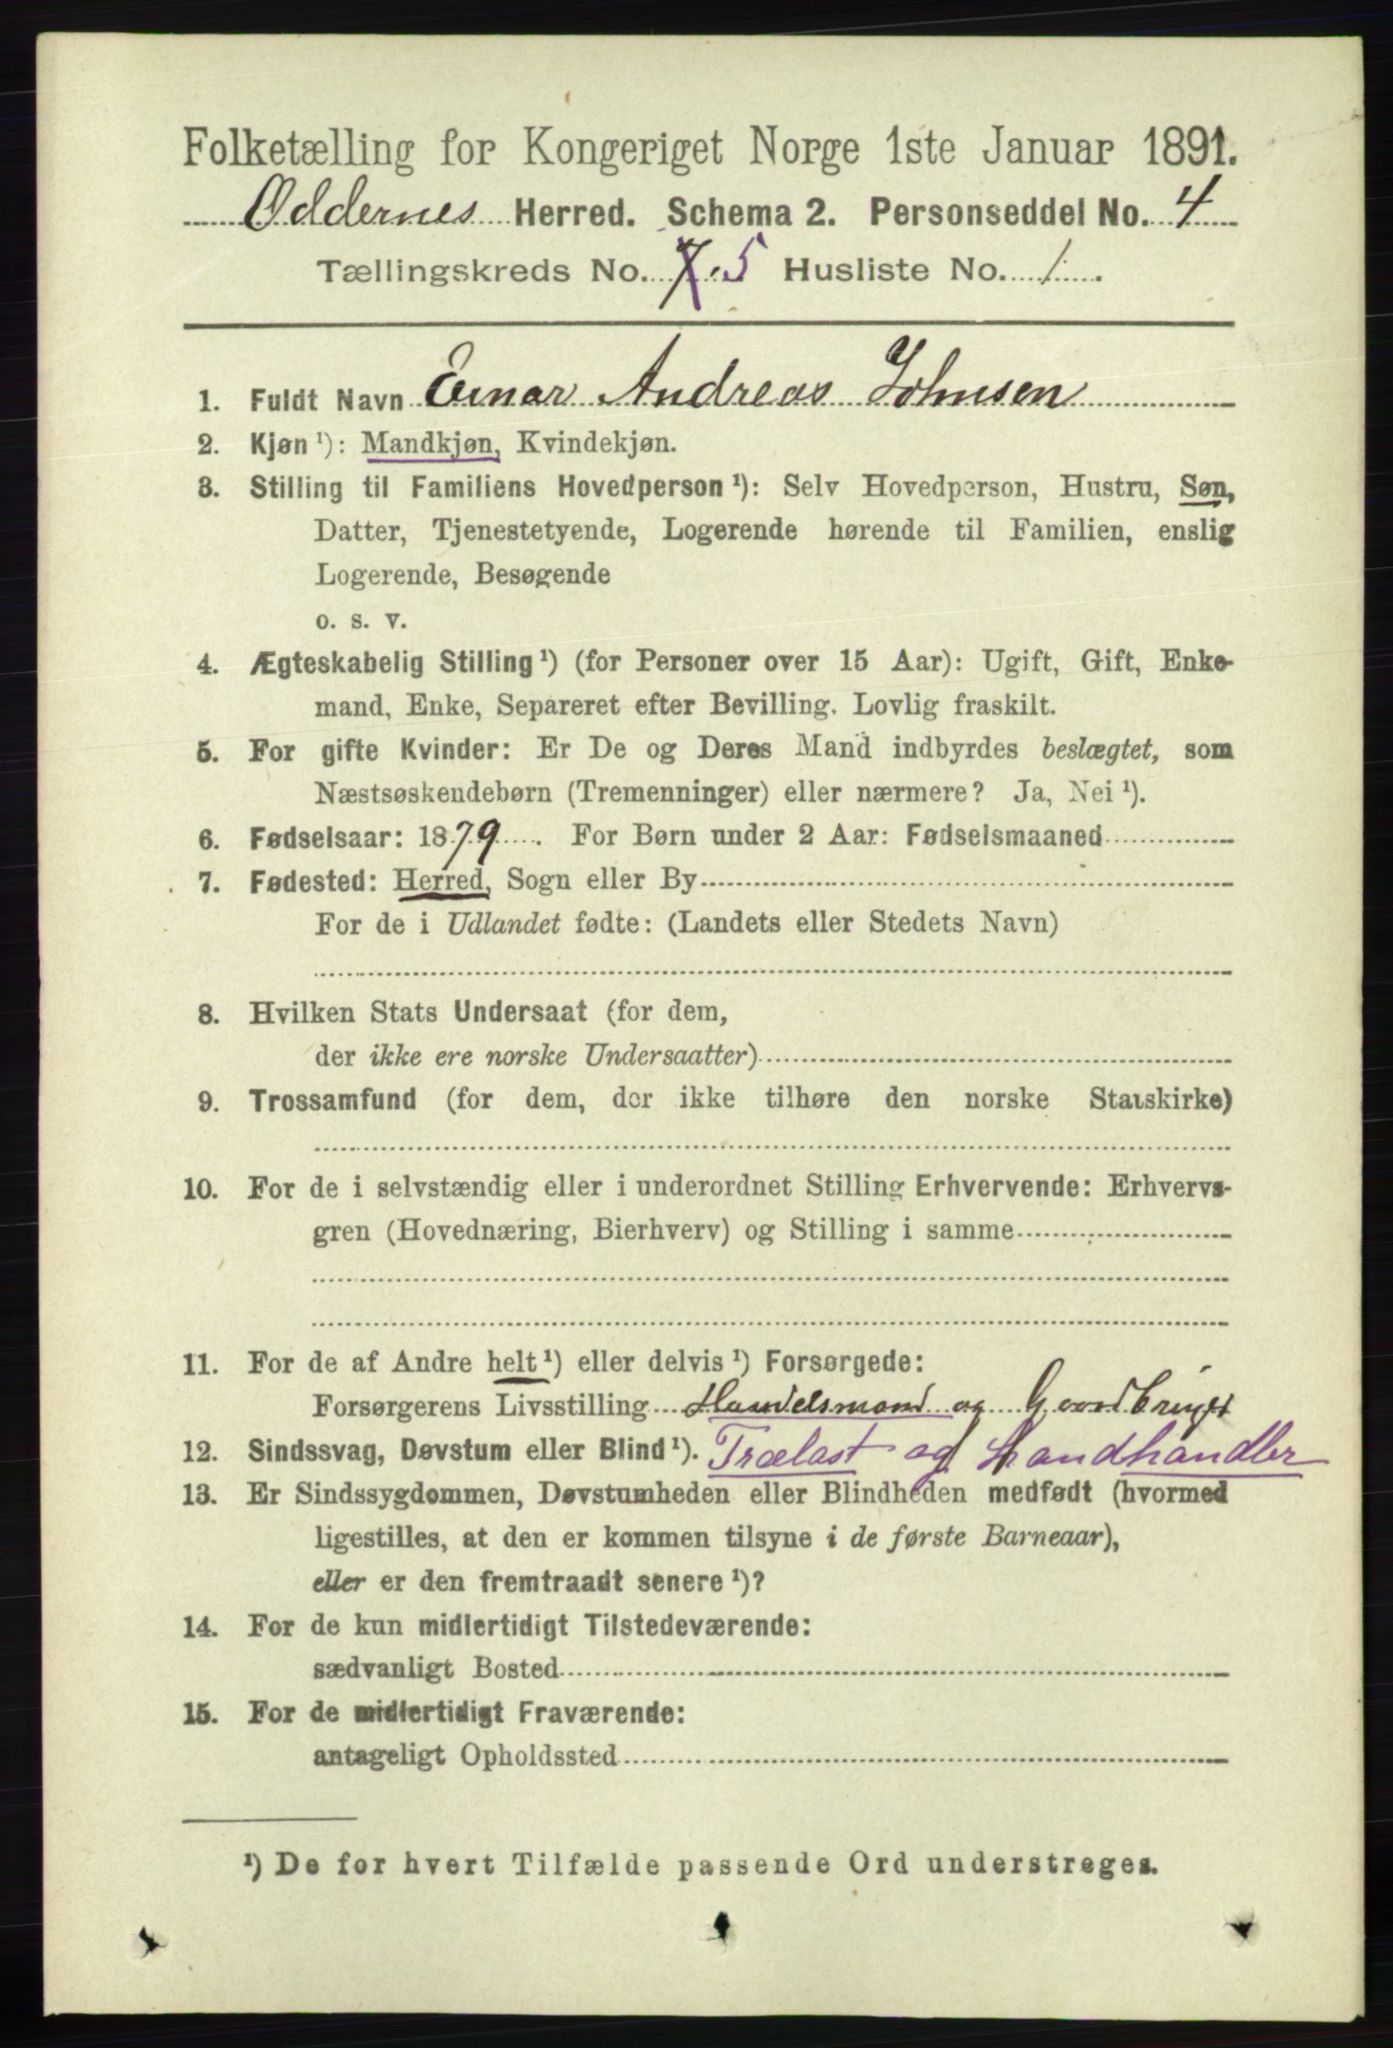 Folketælling for Kongeriget Norge 1ste Januar 1891.
Oddernes Herred. Schema 2. Personseddel No. 4
Tællingskreds No. 7 5 Husliste No. 1.
1. Fuldt Navn Einar Andreas Johnsen
2. Kjøn ¹): Mandkjøn, Kvindekjøn.
3. Stilling til Familiens Hovedperson ¹): Selv Hovedperson, Hustru, Søn,
Datter, Tjenestetyende, Logerende hørende til Familien, enslig
Logerende, Besøgende
o. s. v.
4. Ægteskabelig Stilling ¹) (for Personer over 15 Aar): Ugift, Gift, Enke-
mand, Enke, Separeret efter Bevilling. Lovlig fraskilt.
5. For gifte Kvinder: Er De og Deres Mand indbyrdes beslægtet, som
Næstsøskendebørn (Tremenninger) eller nærmere? Ja, Nei ¹).
6. Fødselsaar: 1879. For Børn under 2 Aar: Fødselsmaaned
7. Fødested: Herred, Sogn eller By
For de i Udlandet fødte: (Landets eller Stedets Navn)
8. Hvilken Stats Undersaat (for dem,
der ikke ere norske Undersaatter)
9. Trossamfund (for dem, der ikke tilhøre den norske Statskirke)
10. For de i selvstændig eller i underordnet Stilling Erhvervende: Erhvervs-
gren (Hovednæring, Bierhverv) og Stilling i samme
11. For de af Andre helt ¹) eller delvis ¹) Forsørgede:
Forsørgerens Livsstilling Handelsmand og Gaardbruger
12. Sindssvag, Døvstum eller Blind ¹). Trælast og Landhandler
13. Er Sindssygdommen, Døvstumheden eller Blindheden medfødt (hvormed
ligestilles, at den er kommen tilsyne i de første Barneaar),
eller er den fremtraadt senere ¹)?
14. For de kun midlertidigt Tilstedeværende:
sædvanligt Bosted
15. For de midlertidigt Fraværende:
antageligt Opholdssted
¹) De for hvert Tilfælde passende Ord understreges.